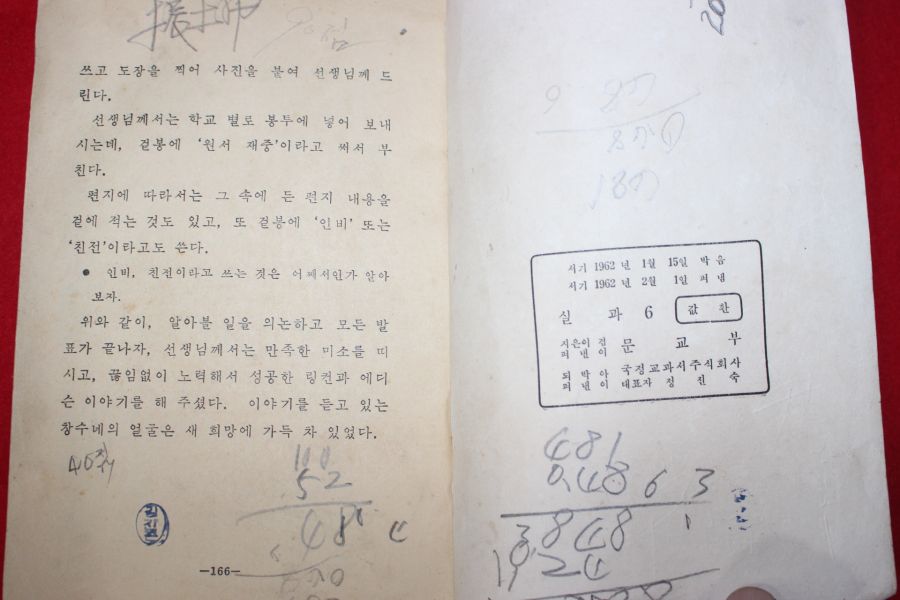 쓰고 도장을 찍어 사진을 붙여 선생님께 드
린다.
선생님께서는 학교 별로 봉투에 넣어 보내
시는데, 겉봉에 ‘원서 재중’이라고 써서 부
친다.
편지에 따라서는 그 속에 든 편지 내용을
겉에 적는 것도 있고, 또 겉봉에 ‘인비’ 또는
‘친전’이라고도 쓴다.
● 인비, 친전이라고 쓰는 것은 어째서인가 알아
보자.
위와 같이, 알아볼 일을 의논하고 모든 발
표가 끝나자, 선생님께서는 만족한 미소를 띠
시고, 끊임없이 노력해서 성공한 링컨과 에디
슨 이야기를 해 주셨다. 이야기를 듣고 있는
창수네의 얼굴은 새 희망에 가득 차 있었다.
100
52
48
—166—
서기 1962 년 1월 15일 박음
서기 1962 년 2월 1일 펴냄
실 과 6 값 환
지은이 겸
펴낸이 문 교 부
되박아
펴낸이 국정교과서주식회사
대표자 정 진 숙
481
0.48 6 3
3848 1
1924